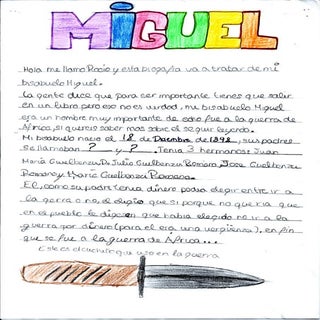 MIGUEL
Hola me llamo Rocio y esta biografia va a tratar de mi
bisabuelo Miguel.
La gente dice que para ser importante tienes que salir
en un libro, pero eso no es verdad, mi bisabuelo Miguel
era un hombre muy importante de este fue a la guerra de
Africa, si quereis saber mas sobre el seguir leyendo.
Mi bisabuelo nacio el 18 de Diciembre de 1898, sus padres
se llamaban ? y ? . Tenia 3 hermanos: Juan
Maria Guelbenzu De Julio Guelbenzu Romano, Jose Guelbenzu
Romano y Mario Guelbenzu Romano.
El, como su padre tenia dinero, podia elegir entre ir a
la gerra o no, el eligio que si porque no queria que
en el pueblo le dijesen que habia elegido no ir a la
guerra por dinero (para el era una vergüenza), en fin
que se fue a la guerra de Africa...
Este es el cuchillo que uso en la guerra